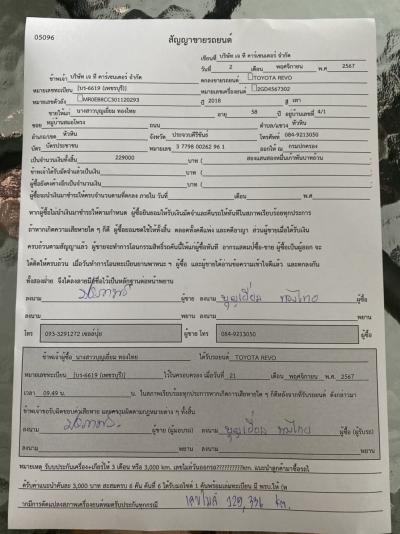 05096
สัญญาขายรถยนต์
เขียนที่ บริษัท เจ ที คาร์เซนเตอร์ จำกัด
วันที่ 2 เดือน พฤศจิกายน พ.ศ 2567
ข้าพเจ้า บริษัท เจ ที คาร์เซนเตอร์ จำกัด ตกลงขายรถยนต์ TOYOTA REVO
หมายเลขทะเบียน บร-6619 (เพชรบุรี) หมายเลขเครื่องยนต์ 2GD4567302
หมายเลขตัวถัง MR0EB8CC301120293 ปี 2018 สี เทา
ขายให้แก่ นางสาวบุญเอี่ยม ทองไทย อายุ 58 ปี อยู่บ้านเลขที่ 4/1
ซอย หมู่บ้านสมอโพรง ถนน ตำบล/แขวง หัวหิน
อำเภอ/เขต หัวหิน จังหวัด ประจวบคีรีขันธ์ โทรศัพท์ 084-9213050
บัตร บัตรประชาชน หมายเลข 3 7798 00262 96 1 ออกให้ ณ กรมปกครอง
เป็นจำนวนเงินทั้งสิ้น 229000 บาท ( สองแสนสองหมื่นเก้าพันบาทถ้วน
ข้าพเจ้าได้รับมัดจำแล้วเป็นเงิน บาท (
ผู้ซื้อยังคงค้างอีกเป็นจำนวนเงิน บาท (
ผู้ซื้อจะนำเงินมาชำระให้ครบจำนวนตามที่ตกลง ภายใน วันที่ เดือน พ.ศ
หากผู้ซื้อไม่นำเงินมาชำระให้ตามกำหนด ผู้ซื้อยินยอมให้ริบเงินมัดจำและคืนรถให้ทันทีในสภาพเรียบร้อยทุกประการ
ถ้าหากเกิดความเสียหายใด ๆ ก็ดี ผู้ซื้อยอมชดใช้ให้ทั้งสิ้น ตลอดทั้งคดีแพ่ง และคดีอาญา ส่วนผู้ขายเมื่อได้รับเงิน
ครบถ้วนตามสัญญาแล้ว ผู้ขายจะทำการโอนกรรมสิทธิ์รถคันนี้ให้แก่ผู้ซื้อทันที อากรแสตมป์ซื้อ-ขาย ผู้ซื้อเป็นผู้ออก จะ
ได้คิดให้ครบถ้วน เมื่อวันทำการโอนทะเบียนยานพาหนะ ฯ ผู้ซื้อ และผู้ขายได้อ่านข้อความเข้าใจดีแล้ว และตกลงกัน
ทั้งสองฝ่าย จึงได้ลงลายมือชื่อไว้เป็นหลักฐานต่อหน้าพยาน
ลงนาม ผู้ขาย ลงนาม บุญเอี่ยม ทองไทย ผู้ซื้อ
ลงนาม พยาน ลงนาม พยาน
โทร 093-3291272 เซลล์ปุ้ย ผู้ขาย โทร 084-9213050 ผู้ซื้อ
ข้าพเจ้าผู้ซื้อ นางสาวบุญเอี่ยม ทองไทย ได้รับรถยนต์ TOYOTA REVO
หมายเลขทะเบียน บร-6619 (เพชรบุรี) ไว้ในครอบครอง เมื่อวันที่ 21 เดือน พฤศจิกายน พ.ศ 2567
เวลา 09.49 น. ในสภาพเรียบร้อยทุกประการหากเกิดการเสียหายใด ๆ ก็ดีหลังจากที่รับรถยนต์ ดังกล่าวมา
ข้าพเจ้าขอรับผิดชอบความเสียหาย และความรับผิดตามกฎหมายต่าง ๆ ทั้งสิ้น
ลงนาม ผู้ขาย (ผู้มอบรถ) ลงนาม บุญเอี่ยม ทองไทย ผู้ซื้อ (ผู้รับรถ)
ลงนาม พยาน ลงนาม พยาน
หมายเหตุ รับประกันเครื่อง+เกียร์ให้ 3 เดือน หรือ 3,000 km. เลขไมล์วันออกรถ??????????km. แนะนำลูกค้ามาซื้อรถไ
ด้รับค่าแนะนำคันละ 3,000 บาท สะสมครบ 6 คัน คันที่ 6 ได้รับมอไซค์ 1 คันพร้อมเล่มทะเบียน มี พรบ.ให้ (ห
ากมีการดัดแปลงสภาพเครื่องยนต์หมดรับประกันทุกกรณี เลขไมล์ 129,336 km.